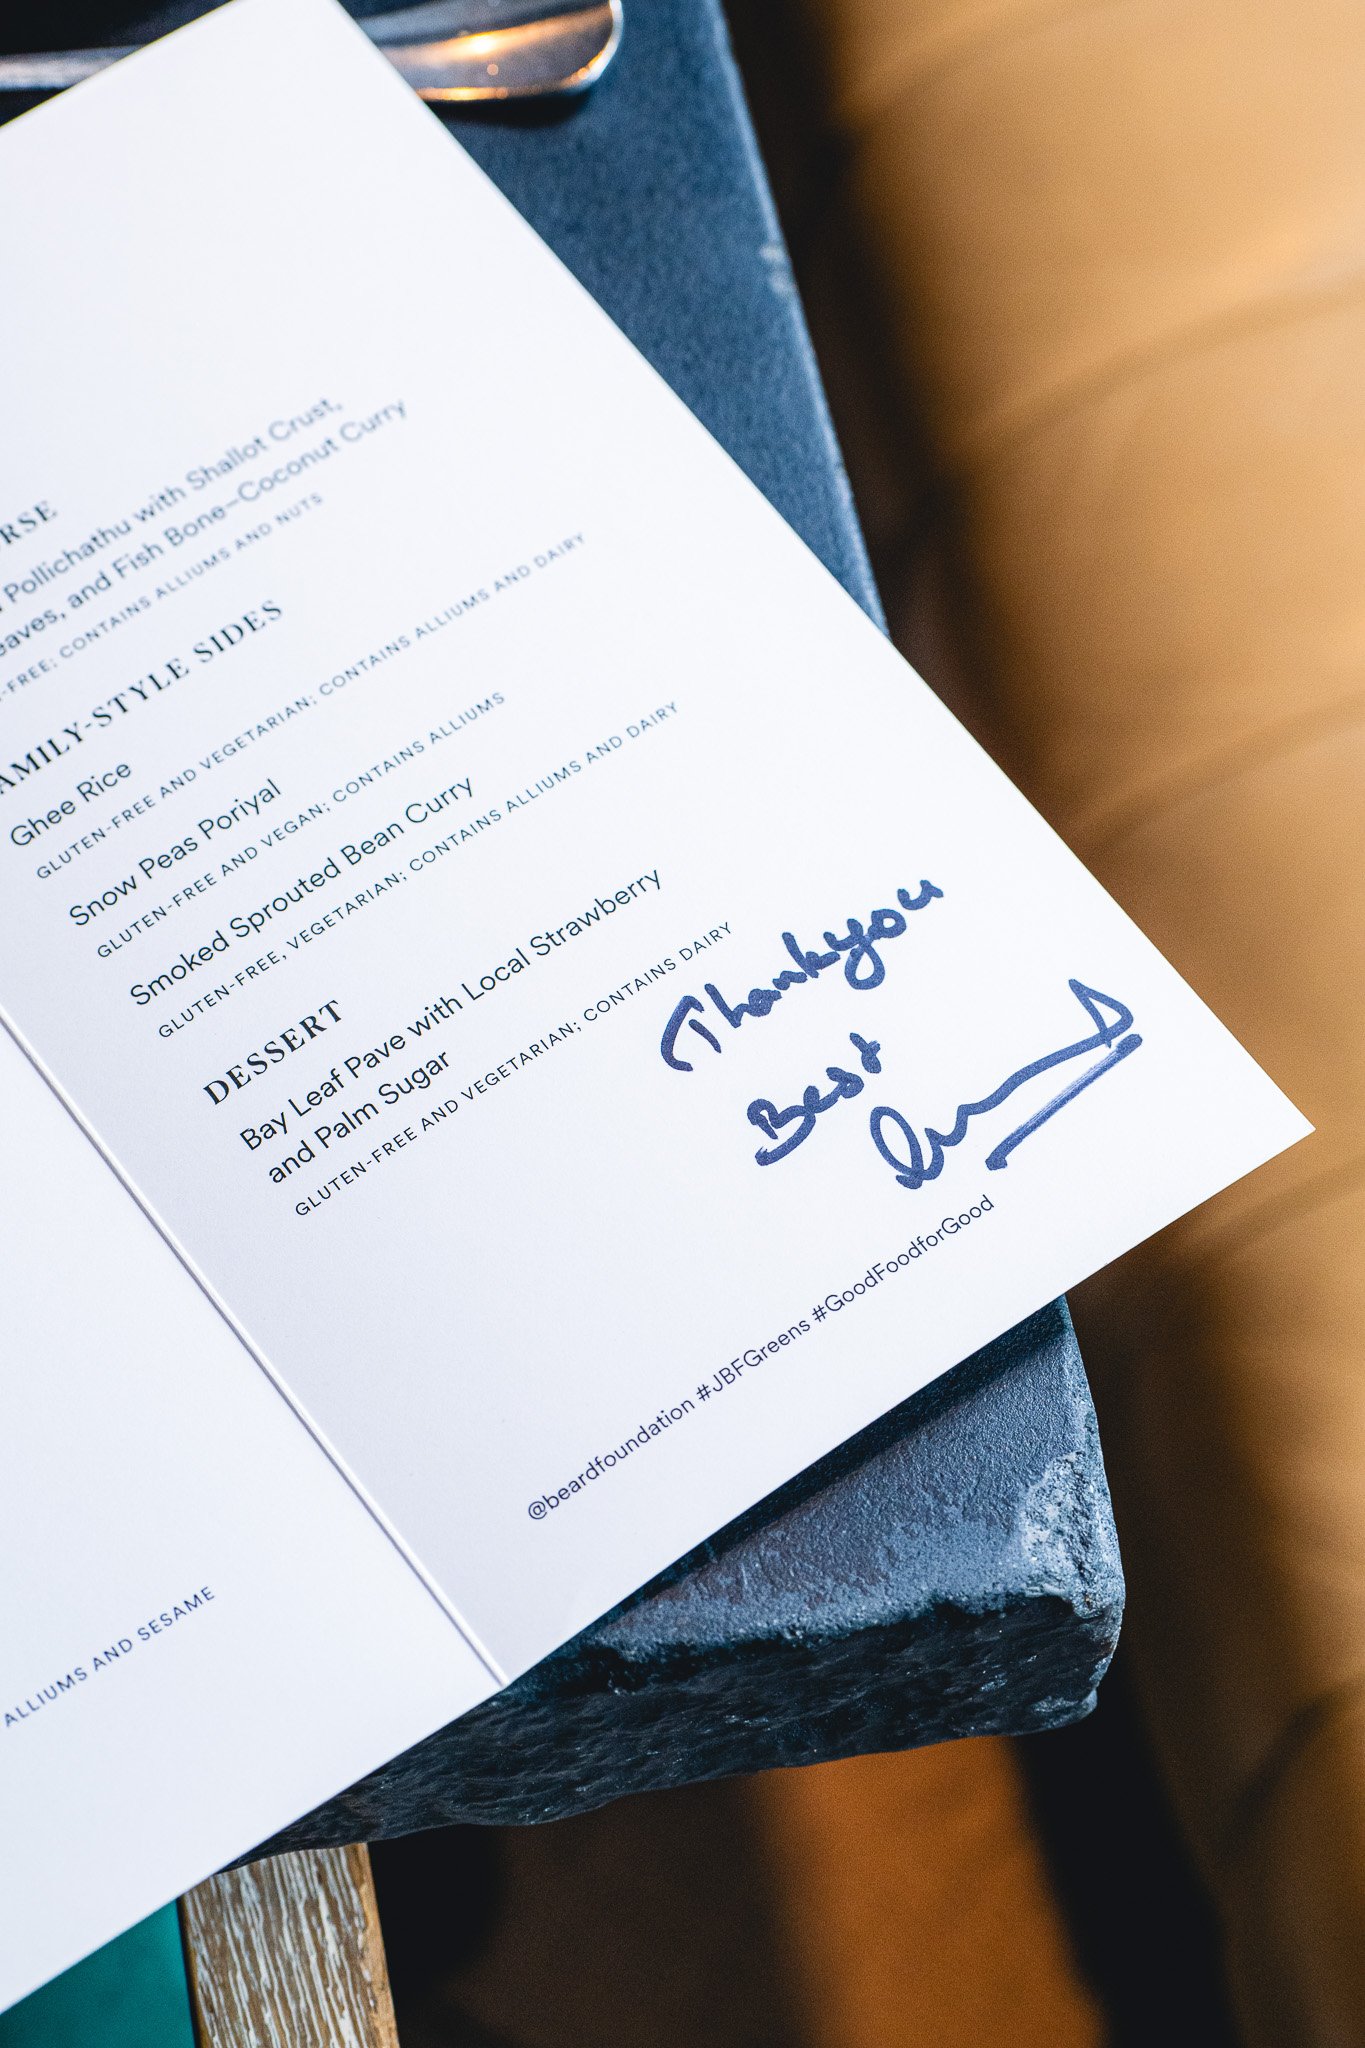 RSE
Pollichathu with Shallot Crust,
eaves, and Fish Bone–Coconut Curry
-FREE; CONTAINS ALLIUMS AND NUTS
AMILY-STYLE SIDES
Ghee Rice
GLUTEN-FREE AND VEGETARIAN; CONTAINS ALLIUMS AND DAIRY
Snow Peas Poriyal
GLUTEN-FREE AND VEGAN; CONTAINS ALLIUMS
Smoked Sprouted Bean Curry
GLUTEN-FREE, VEGETARIAN; CONTAINS ALLIUMS AND DAIRY
DESSERT
Bay Leaf Pave with Local Strawberry
and Palm Sugar
GLUTEN-FREE AND VEGETARIAN; CONTAINS DAIRY
Thankyou
Best
@beardfoundation #JBFGreens #GoodFoodforGood
ALLIUMS AND SESAME